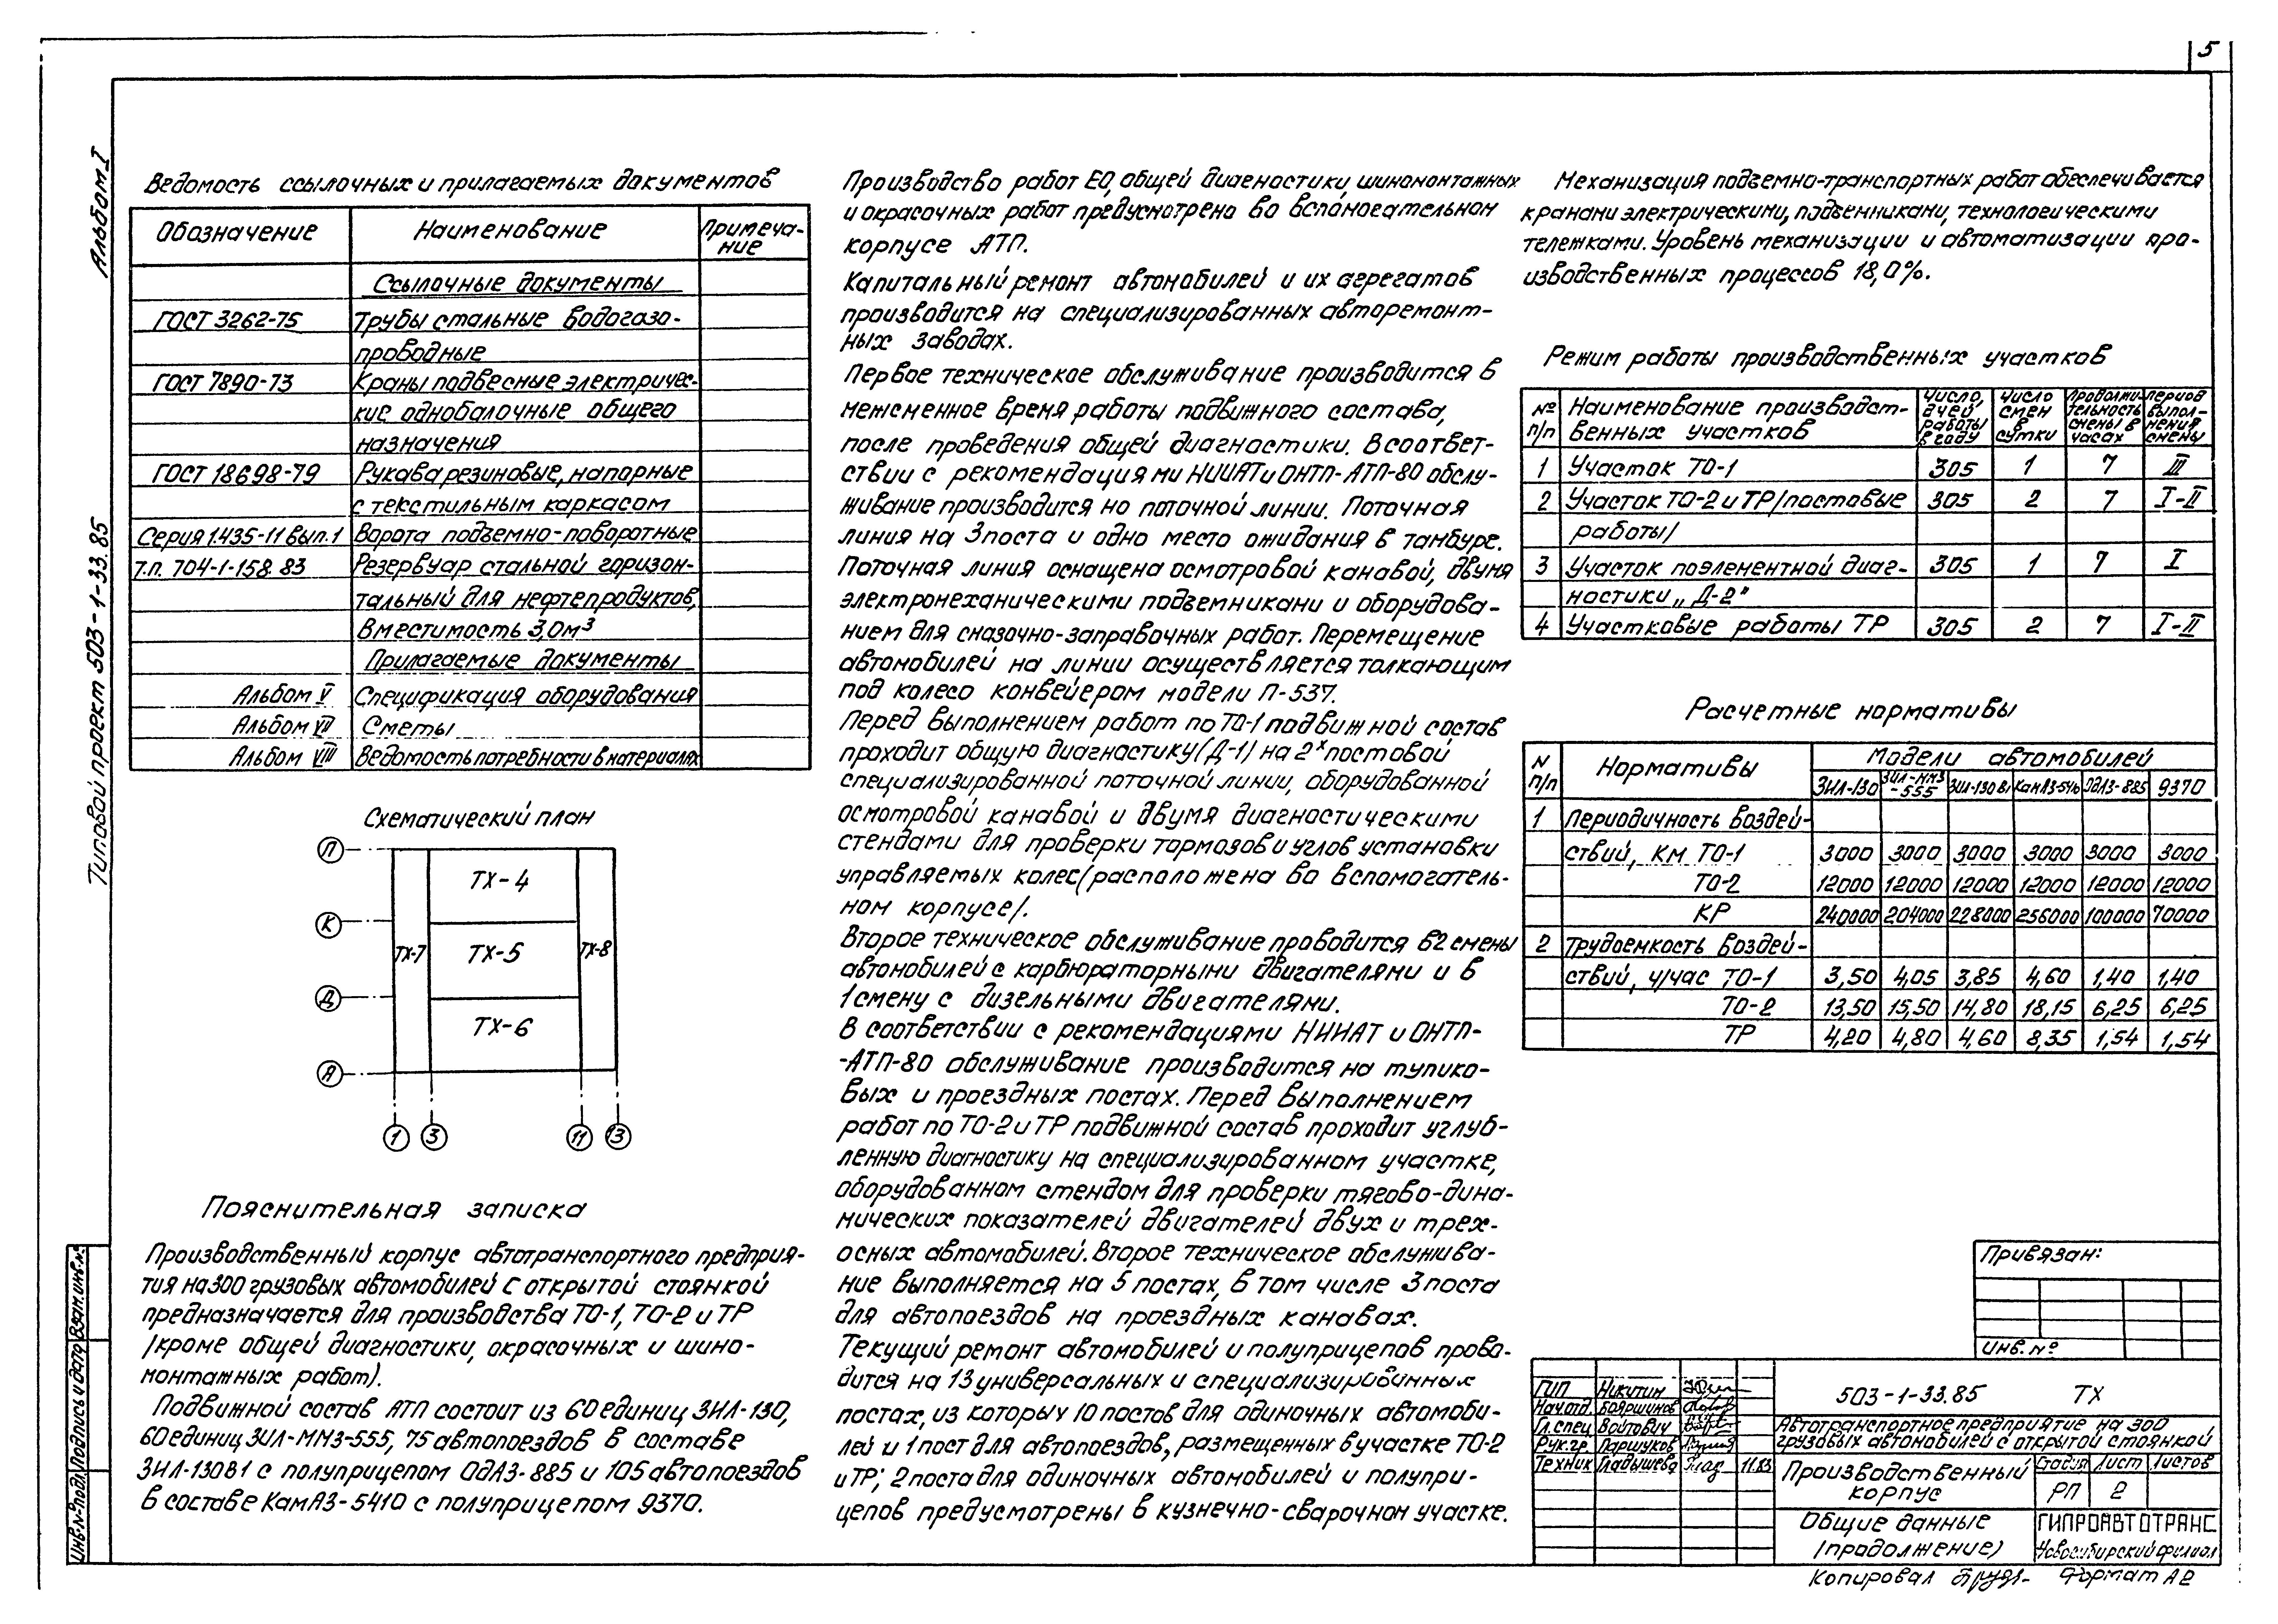 5
Альбом I
Типовой проект 503-1-33.85
Ведомость ссылочных и прилагаемых документов
Обозначение Наименование Примеча-
ние
Ссылочные документы
ГОСТ 3262-75 Трубы стальные водогазо-
проводные
ГОСТ 7890-73 Краны подвесные электричес-
кие однобалочные общего
назначения
ГОСТ 18698-79 Рукава резиновые, напорные
с текстильным каркасом
Серия 1.435-11 вып.1 Ворота подъемно-поворотные
Т.п. 704-1-158.83 Резервуар стальной горизон-
тальный для нефтепродуктов,
вместимость 3,0м³
Прилагаемые документы
Альбом V Спецификация оборудования
Альбом VII Сметы
Альбом VIII Ведомость потребности в материалах
Схематический план
П
К
Д
А
ТХ-4
ТХ-7 ТХ-5 ТХ-8
ТХ-6
1 3 11 13
Пояснительная записка
Производственный корпус автотранспортного предприя-
тия на 300 грузовых автомобилей с открытой стоянкой
предназначается для производства ТО-1, ТО-2 и ТР
/кроме общей диагностики, окрасочных и шино-
монтажных работ).
Подвижной состав АТП состоит из 60 единиц ЗИЛ-130,
60 единиц ЗИЛ-ММЗ-555, 75 автопоездов в составе
ЗИЛ-130В1 с полуприцепом ОдАЗ-885 и 105 автопоездов
в составе КамАЗ-5410 с полуприцепом 9370.
Производство работ ЕО, общей диагностики, шиномонтажных
и окрасочных работ предусмотрено во вспомогательном
корпусе АТП.
Капитальный ремонт автомобилей и их агрегатов
производится на специализированных авторемонт-
ных заводах.
Первое техническое обслуживание производится в
межсменное время работы подвижного состава,
после проведения общей диагностики. В соответ-
ствии с рекомендациями НИИАТ и ОНТП-АТП-80 обслу-
живание производится но поточной линии. Поточная
линия на 3 поста и одно место ожидания в тамбуре.
Поточная линия оснащена осмотровой канавой, двумя
электромеханическими подъемниками и оборудова-
нием для смазочно-заправочных работ. Перемещение
автомобилей на линии осуществляется толкающим
под колесо конвейером модели П-537.
Перед выполнением работ по ТО-1 подвижной состав
проходит общую диагностику (Д-1) на 2ˣ постовой
специализированной поточной линии, оборудованной
осмотровой канавой и двумя диагностическими
стендами для проверки тормозов и углов установки
управляемых колес (расположена во вспомогатель-
ном корпусе/.
Второе техническое обслуживание проводится в 2 смены
автомобилей с карбюраторными двигателями и в
1 смену с дизельными двигателями.
В соответствии с рекомендациями НИИАТ и ОНТП-
-АТП-80 обслуживание производится на тупико-
вых и проездных постах. Перед выполнением
работ по ТО-2 и ТР подвижной состав проходит углуб-
ленную диагностику на специализированном участке,
оборудованном стендом для проверки тягово-дина-
мических показателей двигателей двух и трех-
осных автомобилей. Второе техническое обслужива-
ние выполняется на 5 постах, в том числе 3 поста
для автопоездов на проездных канавах.
Текущий ремонт автомобилей и полуприцепов прово-
дится на 13 универсальных и специализированных
постах, из которых 10 постов для одиночных автомоби-
лей и 1 пост для автопоездов, размещенных в участке ТО-2
и ТР; 2 поста для одиночных автомобилей и полупри-
цепов предусмотрены в кузнечно-сварочном участке.
Механизация подъемно-транспортных работ обеспечивается
кранами электрическими, подъемниками, технологическими
тележками. Уровень механизации и автоматизации про-
изводственных процессов 18,0%.
Режим работы производственных участков
№ п/п Наименование производст-
венных участков Число дней работы в году Число смен в сутки Продолжи-
тельность смены в часах Период выпол-
нения смены
1 Участок ТО-1 305 1 7 III
2 Участок ТО-2 и ТР/постовые 305 2 7 I-II
работы/
3 Участок поэлементной диаг- 305 1 7 I
ностики „Д-2"
4 Участковые работы ТР 305 2 7 I-II
Расчетные нормативы
N п/п Нормативы Модели автомобилей
ЗИЛ-130 ЗИЛ-ММЗ-555 ЗИЛ-130В1 КамАЗ-5410 ОдАЗ-885 9370
1 Периодичность воздей-
ствий, км ТО-1 3000 3000 3000 3000 3000 3000
ТО-2 12000 12000 12000 12000 12000 12000
КР 240000 204000 228000 256000 100000 70000
2 Трудоемкость воздей-
ствий, ч/час ТО-1 3,50 4,05 3,85 4,60 1,40 1,40
ТО-2 13,50 15,50 14,80 18,15 6,25 6,25
ТР 4,20 4,80 4,60 8,35 1,54 1,54
Привязан:
Инв. №
ГИП Никитин
Нач.отд. Бояршинов
Гл.спец. Войтович
Рук.гр. Паршуков
Техник Гладышева 11.83
503-1-33.85 ТХ
Автотранспортное предприятие на 300
грузовых автомобилей с открытой стоянкой
Производственный
корпус
Стадия Лист Листов
РП 2
Общие данные
(продолжение)
ГИПРОАВТОТРАНС
Новосибирский филиал
Копировал Формат А2
Инв.№ подл. Подпись и дата Взам.инв.№